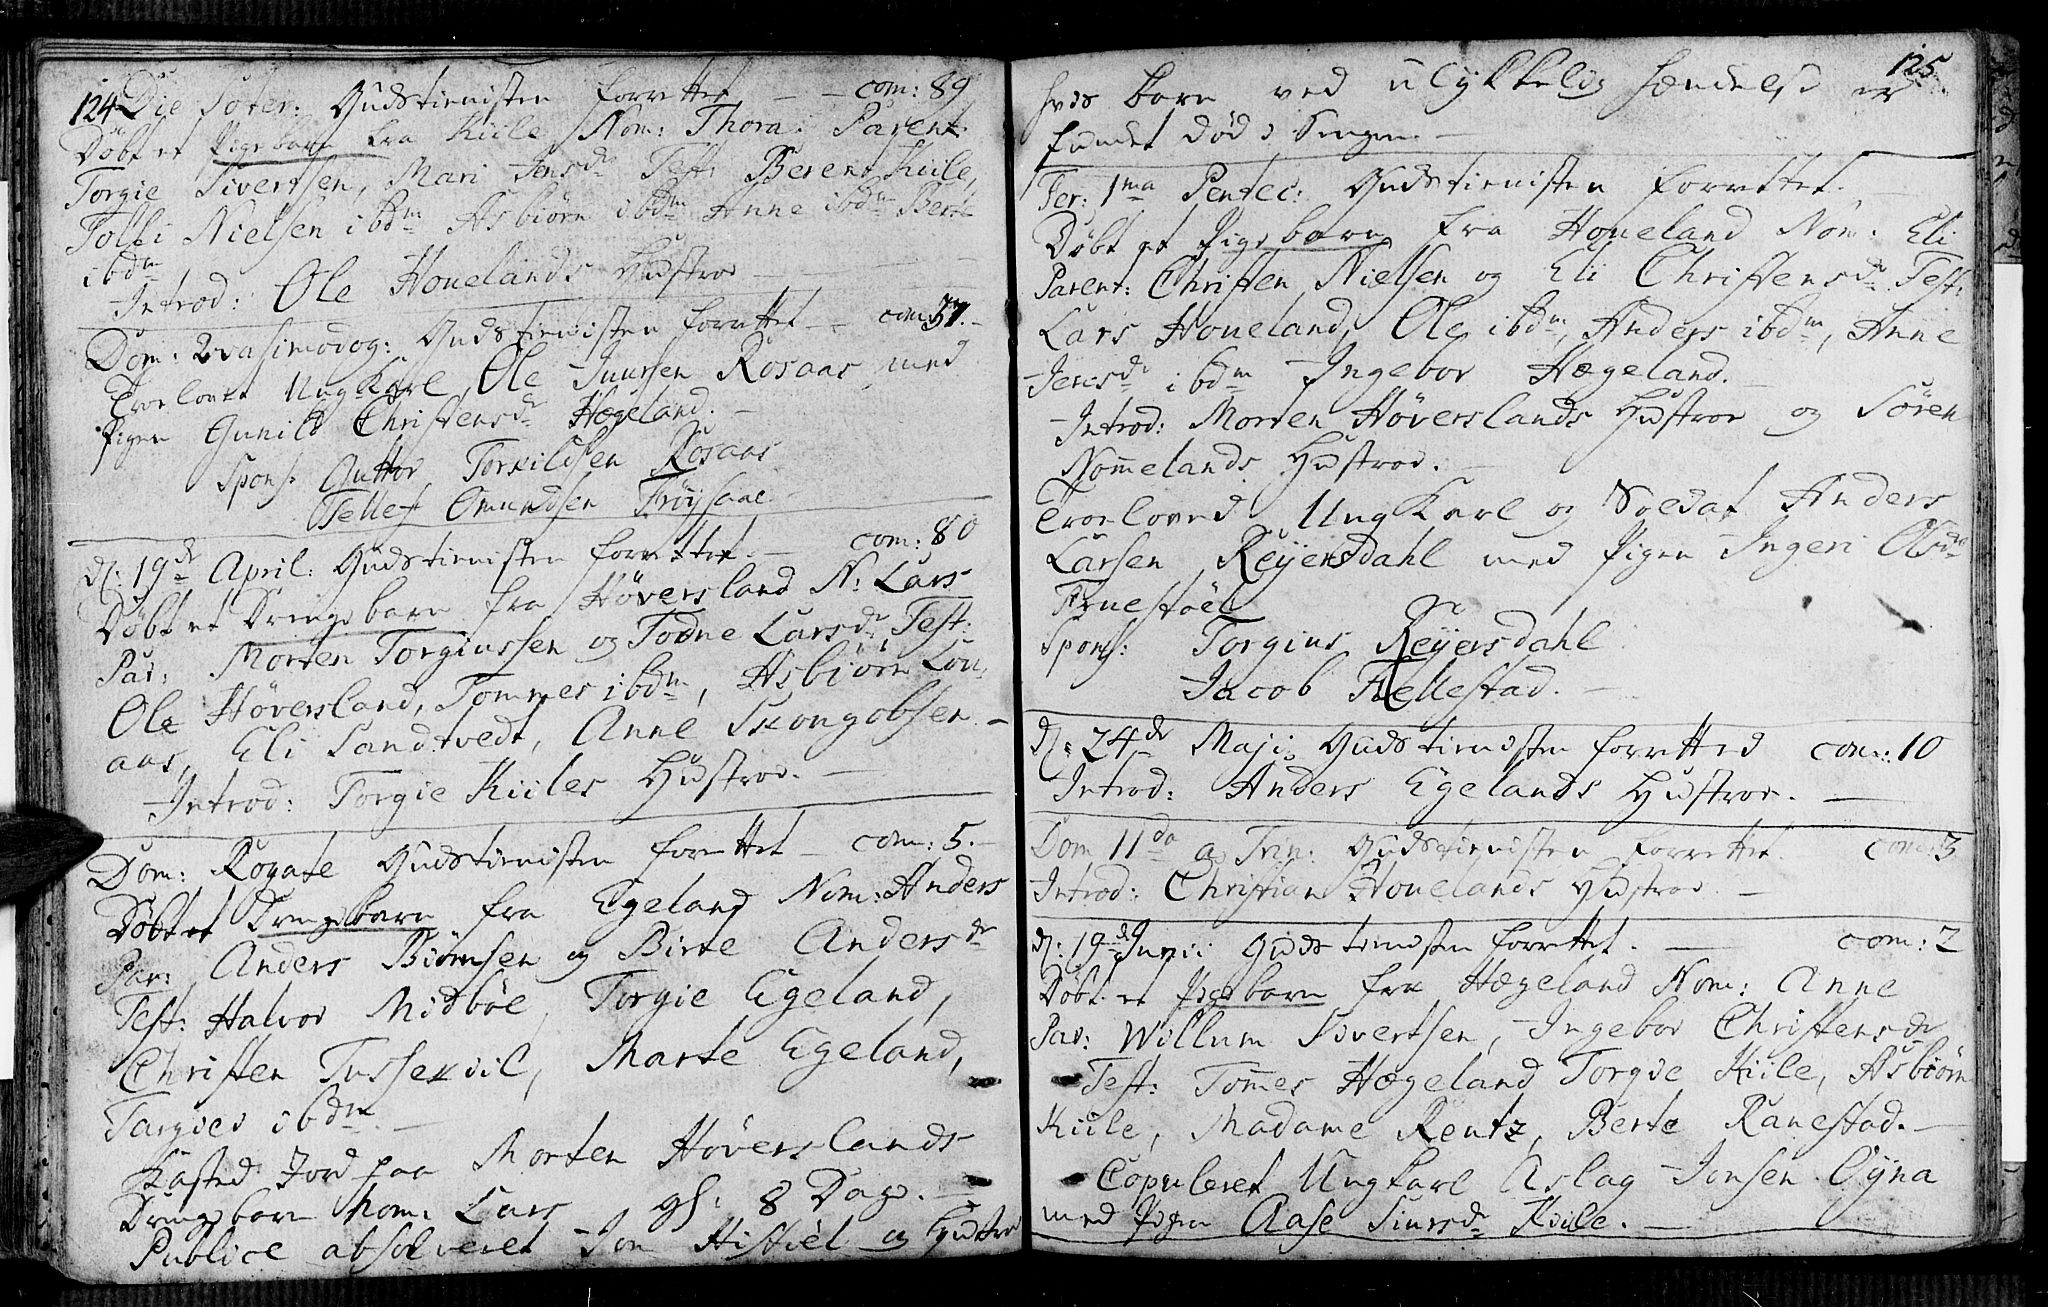 124
Die Viter: Gudstienisten forrettet — com: 89
Döbt et Pigebarn fra Kiile Nom: Thora. Parent:
Torgie Sivertsen, Mari Jensdr Test: Berent Kiile,
Tolli Nielsen ibdm Asbiörn ibdm Anne ibdm Berte
ibdm
Introd: Ole Houelands Hustroe —
Dom: Qvasimodog: Gudstienisten forrettet — com: 37. —
Troelovet Ungkarl Ole Siursen Rosaas med
Pigen Gunild Christensdr Hægeland. —
Spons: Guttor Torkildsen Rosaas
Tellef Omundsen Fröysaae.
d: 19de April: Gudstienisten forrettet. — com: 80
Döbt et Drengebarn fra Höversland N: Lars
Par: Morten Torgiussen og Todne Larsdr Test:
Ole Höversland, Tommes ibdm, Asbiörn Lou-
aas, Eli Sandtvedt, Anne Skongobsen —
Introd: Torgie Kiiles Hustroe. —
Dom: Rogate Gudstienisten forrettet — com: 5. —
Döbt et Drengebarn fra Egeland Nom: Anders
Par: Anders Biörnsen og Birte Andersdr
Test: Halvor Midböe, Torgie Egeland,
Christen Tusservil, Marte Egeland,
Targier ibdm —
Kasted Jord paa Morten Höverslands
Drengebarn Nom: Lars gl: 8 Dage. —
Publice absolveret Jon Histöel og Hustroe
125
hvis barn ved ulykkelig Hændelse er
fundet död i Sengen. —
Fer: 1ma Pentec: Gudstienisten forrettet. —
Döbt et Pigebarn fra Houeland Nom: Eli
Parent: Christen Nielsen og Eli Christensdr Test:
Lars Houeland, Ole ibdm, Anders ibdm, Anne
Jensdr ibdm Ingebor Hægeland. —
Introd: Morten Höverslands Hustroe og Sören
Nomelands Hustroe. —
Troeloved Ungkarl og Soldat Anders
Larsen Reijersdahl med Pigen Ingeri Olsdr
Frnestöel
Spons: Torgius Reijersdahl
Jacob Fiellestad. —
d: 24de Maji Gudstienisten forretted com: 10
Introd: Anders Egelands Hustroe. —
Dom 11da a Trin: Gudstienisten forrettet. com: 3
Introd: Christian Houelands Hustroe. —
d: 19de Junii: Gudstienisten forrettet. — com: 2
Döbt et Pigebarn fra Hægeland Nom: Anne
Par: Willum Sivertsen, Ingebor Christensdr
Test: Tomes Hægeland Torgie Kiile, Asbiörn
Kiile, Madame Rentz, Berte Ranestad. —
Copuleret Ungkarl Aslag Jonsen Öyna
med Pigen Aase Siursdr Kiile. —